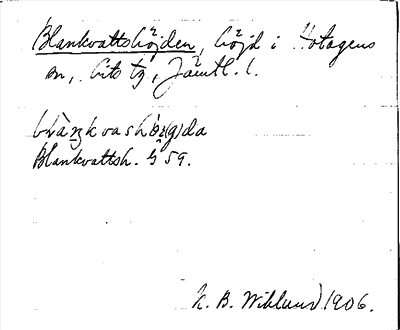 Blankvattshöjden, höjd i Hotagens
sn, Lits tg, Jämtl. l.
Blankvattsh. G 59.
K. B. Wiklund 1906.